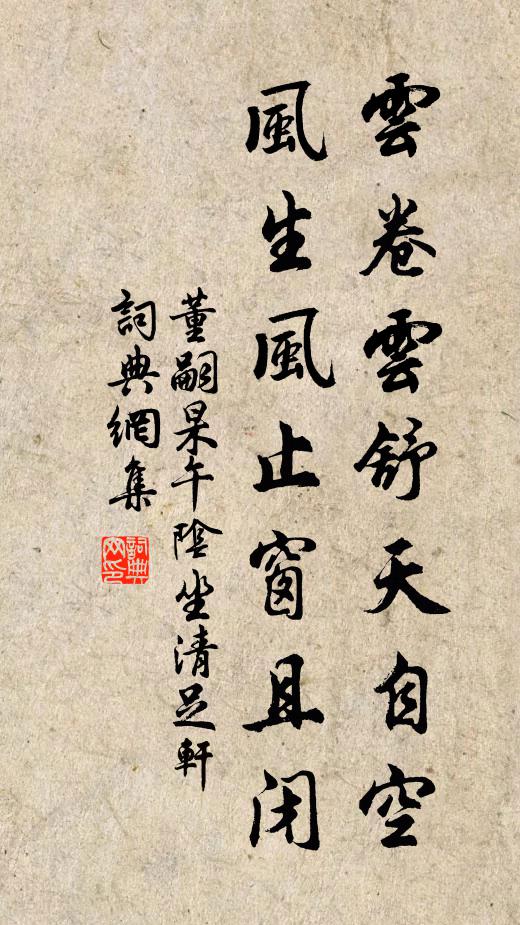 雲卷雲舒天自空
風生風止窗且闭
董嗣杲午陰坐清足軒
詞典網集
詞典网印